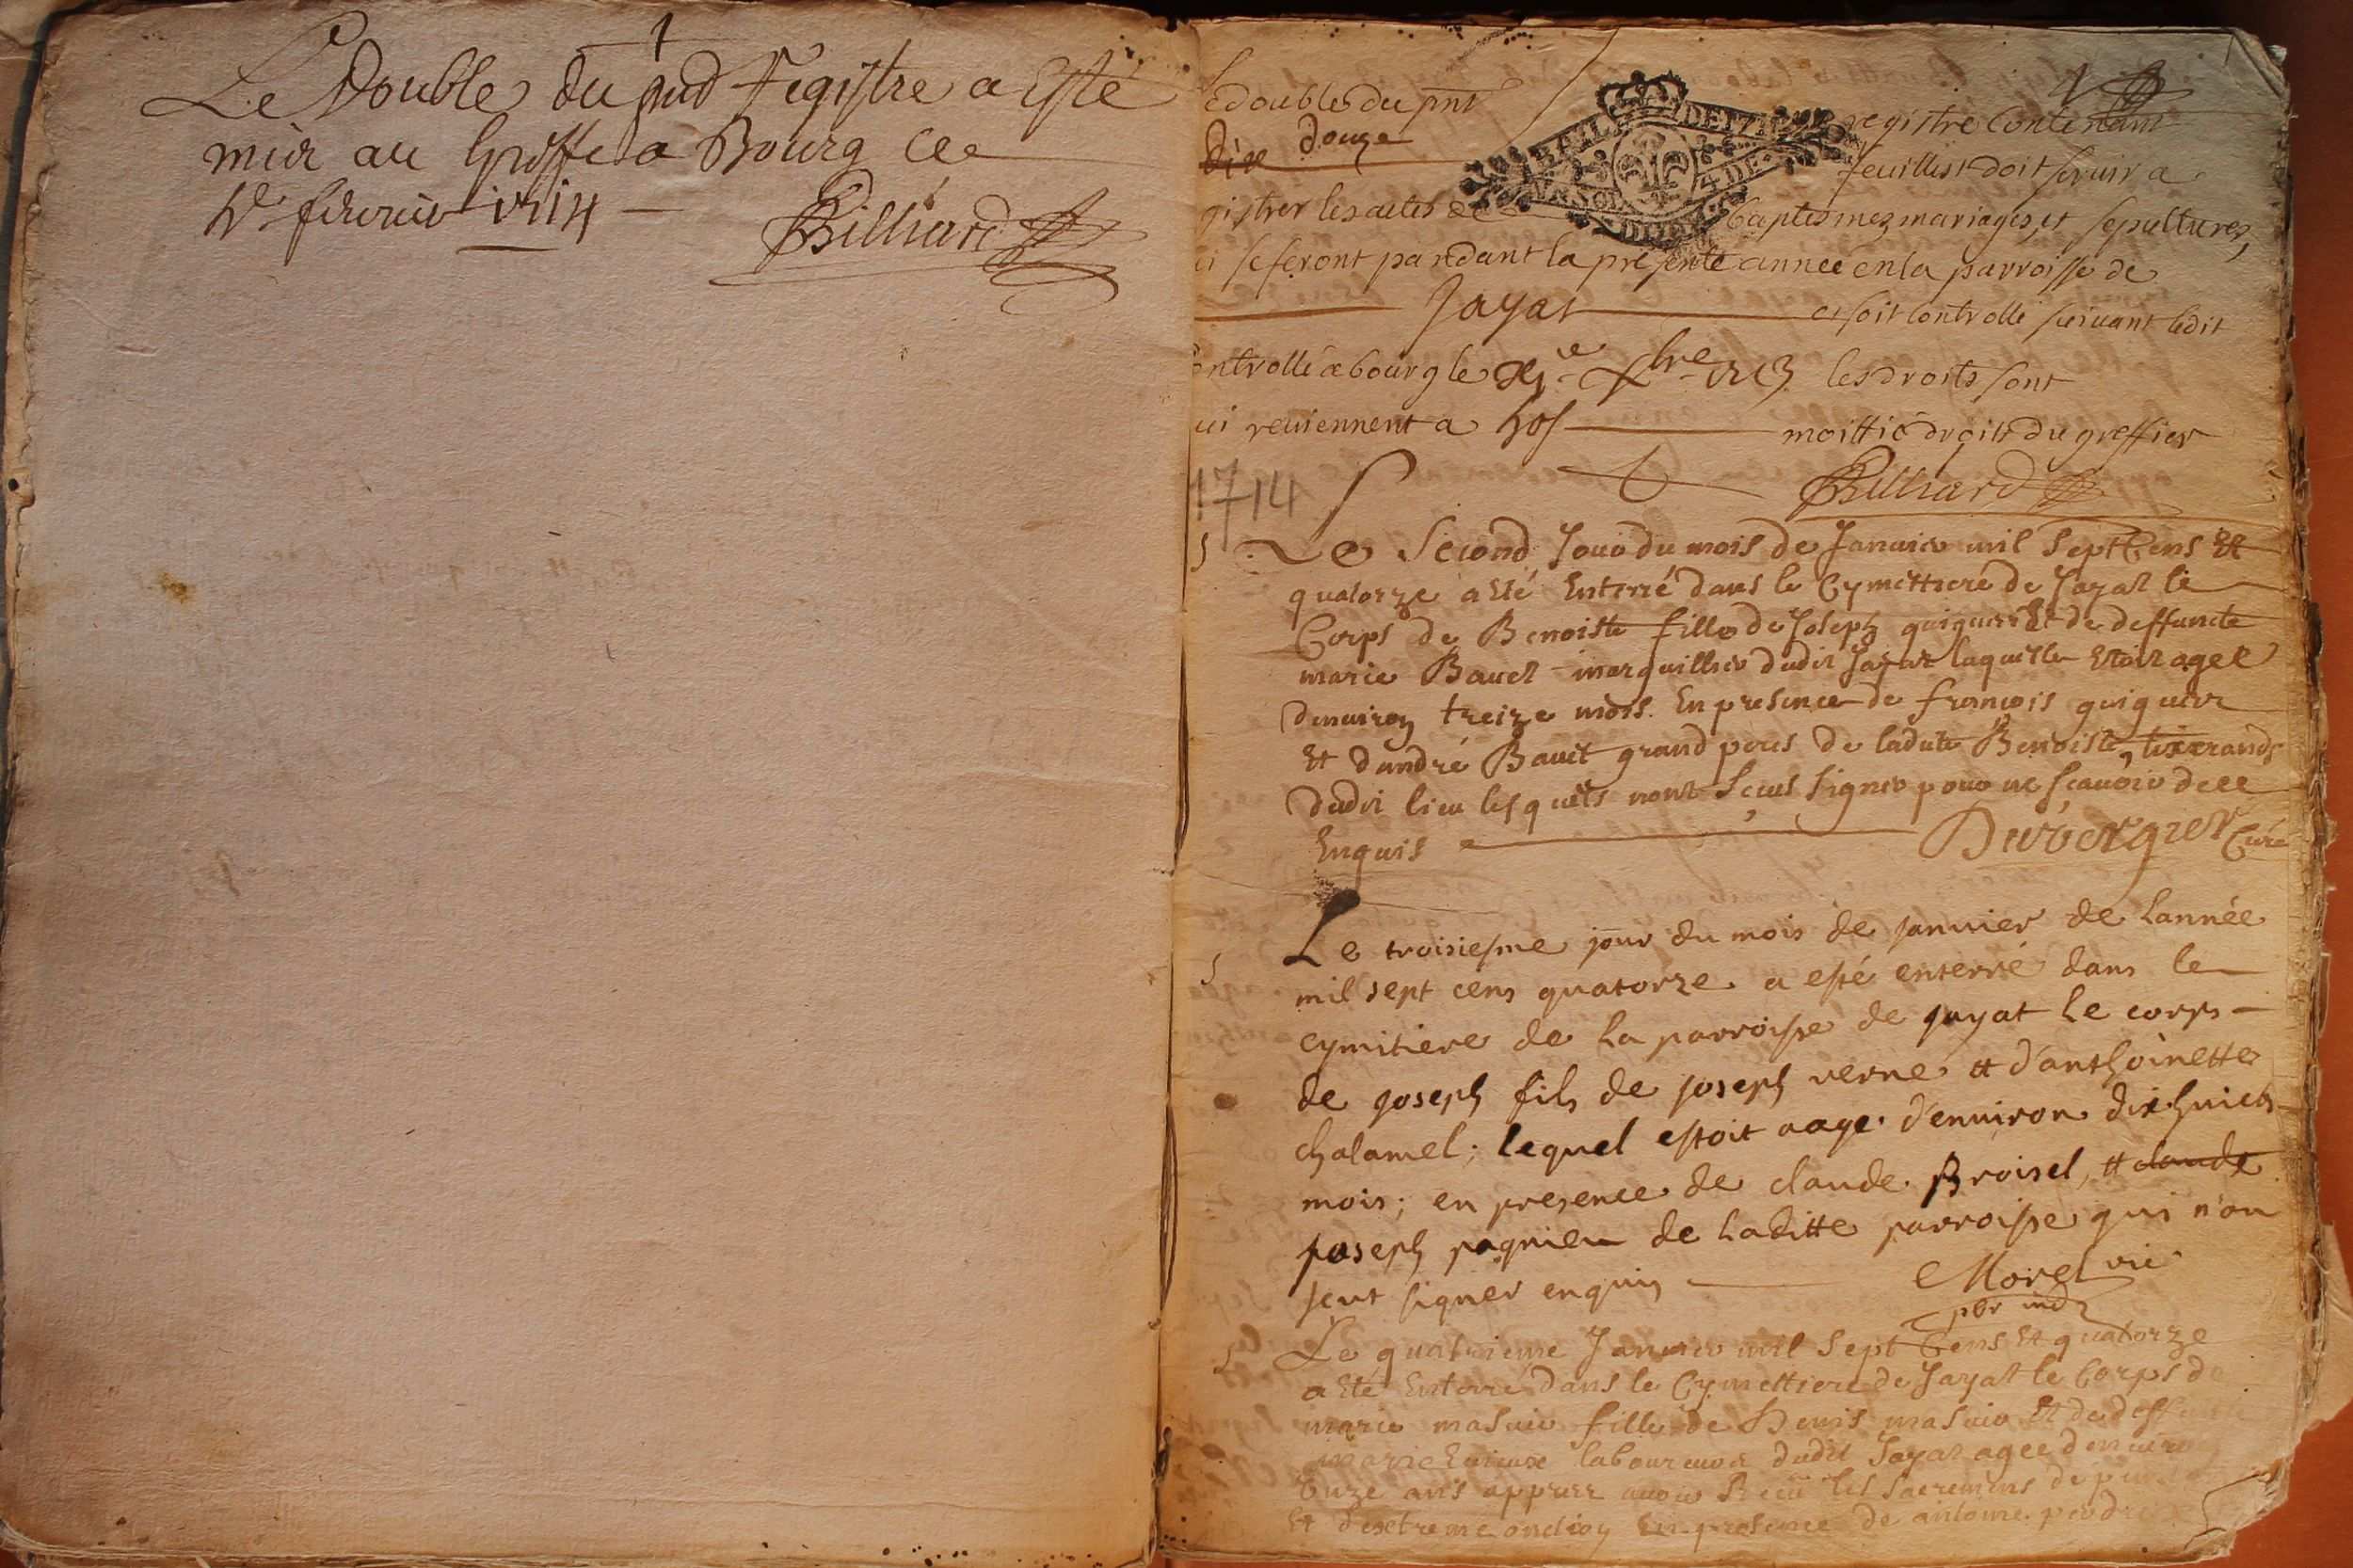 Le Double du pnd Registre a Esté
mis au Greffe a Bourg Ce
fevrier 1714
Billiard
e double du pnt registre contenant
dix douze feuillets doit servir a
gistrer les actes de baptesmes mariages et sepultures
i se feront pandant la presente année en la parroisse de
Jayat et soit controllé suivant ledit
ontrollé a bourg le les droits sont
ui reviennent a moittié droits du greffier
1714
Billiard
S Le Second Jour du mois de Janvier mil Sept Cens Et
quatorze a Eté Enterré dans le Cymettiere de Jayat le
Corps de Benoiste fille de Joseph guiguer Et de deffuncte
marie Bauet marguillier dudit Jayat laquelle Etoit agee
denviron treize mois. En presence de françois guiguer
Et dandré Bauet grand peres de ladite Benoiste, tixerands
dudit lieu lesquels nont sceus signer pour ne scavoir dee
Enquis Duverger Curé
S Le troisiesme jour du mois de janvier de lannée
mil sept cens quatorze a esté enterré dans le
cymitiere de la parroisse de jayat le corps
de joseph fils de joseph verne et d'anthoinette
chalamel; lequel estoit aage d'environ dix huict
mois; en presence de claude Broisel, et claude
joseph pagnieu de laditte parroisse qui n'on
sceut signer enquis Morel vic
pbr ind
S Le quatrieme Janvier mil Sept Cens Et quatorze
a Eté Enterré dans le Cymettiere de Jayat le Corps de
marie masuir fille de Denis masuir Et de deff
marie laboureur dudit Jayat agee denviron
Onze ans appres avoir Receu les Sacremens de
Et dextreme onction En presence de antoine